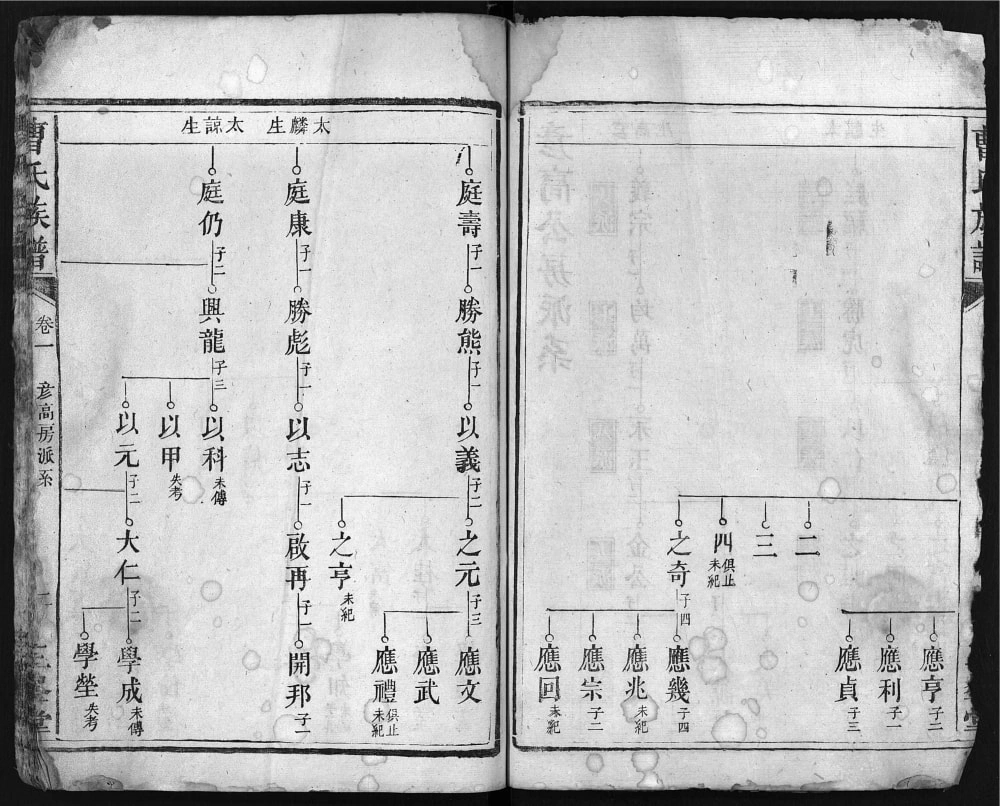 曹氏族譜
二
三
四 俱止未紀
之奇 子四
應亨 子二
應利 子一
應貞 子三
應幾 子四
應兆 未紀
應宗 子二
應回 未紀
太麟生
太諒生
庭壽 子一
勝熊 子一
以義 子二
之元 子三
應文
應武
應禮 俱止未紀
之亨 未紀
庭康 子一
勝彪 子一
以志 子一
啟再 子一
開邦 子一
庭仍 子二
興龍 子三
以科 未傳
以甲 失考
以元 子二
大仁 子二
學成 未傳
學塋 失考
曹氏族譜
卷一
彦高房派系